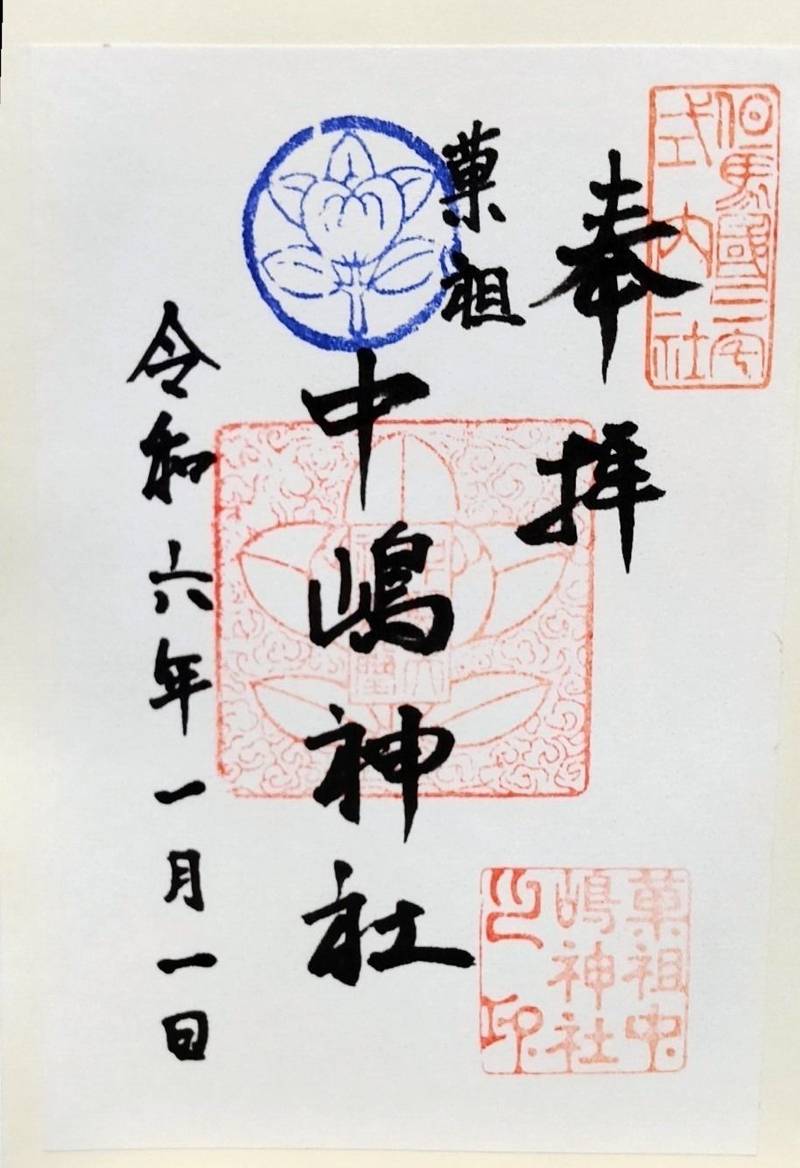 但馬國二宮
式内社
奉拝
菓祖
中嶋神社
令和六年一月一日
菓祖中
嶋神社
之印